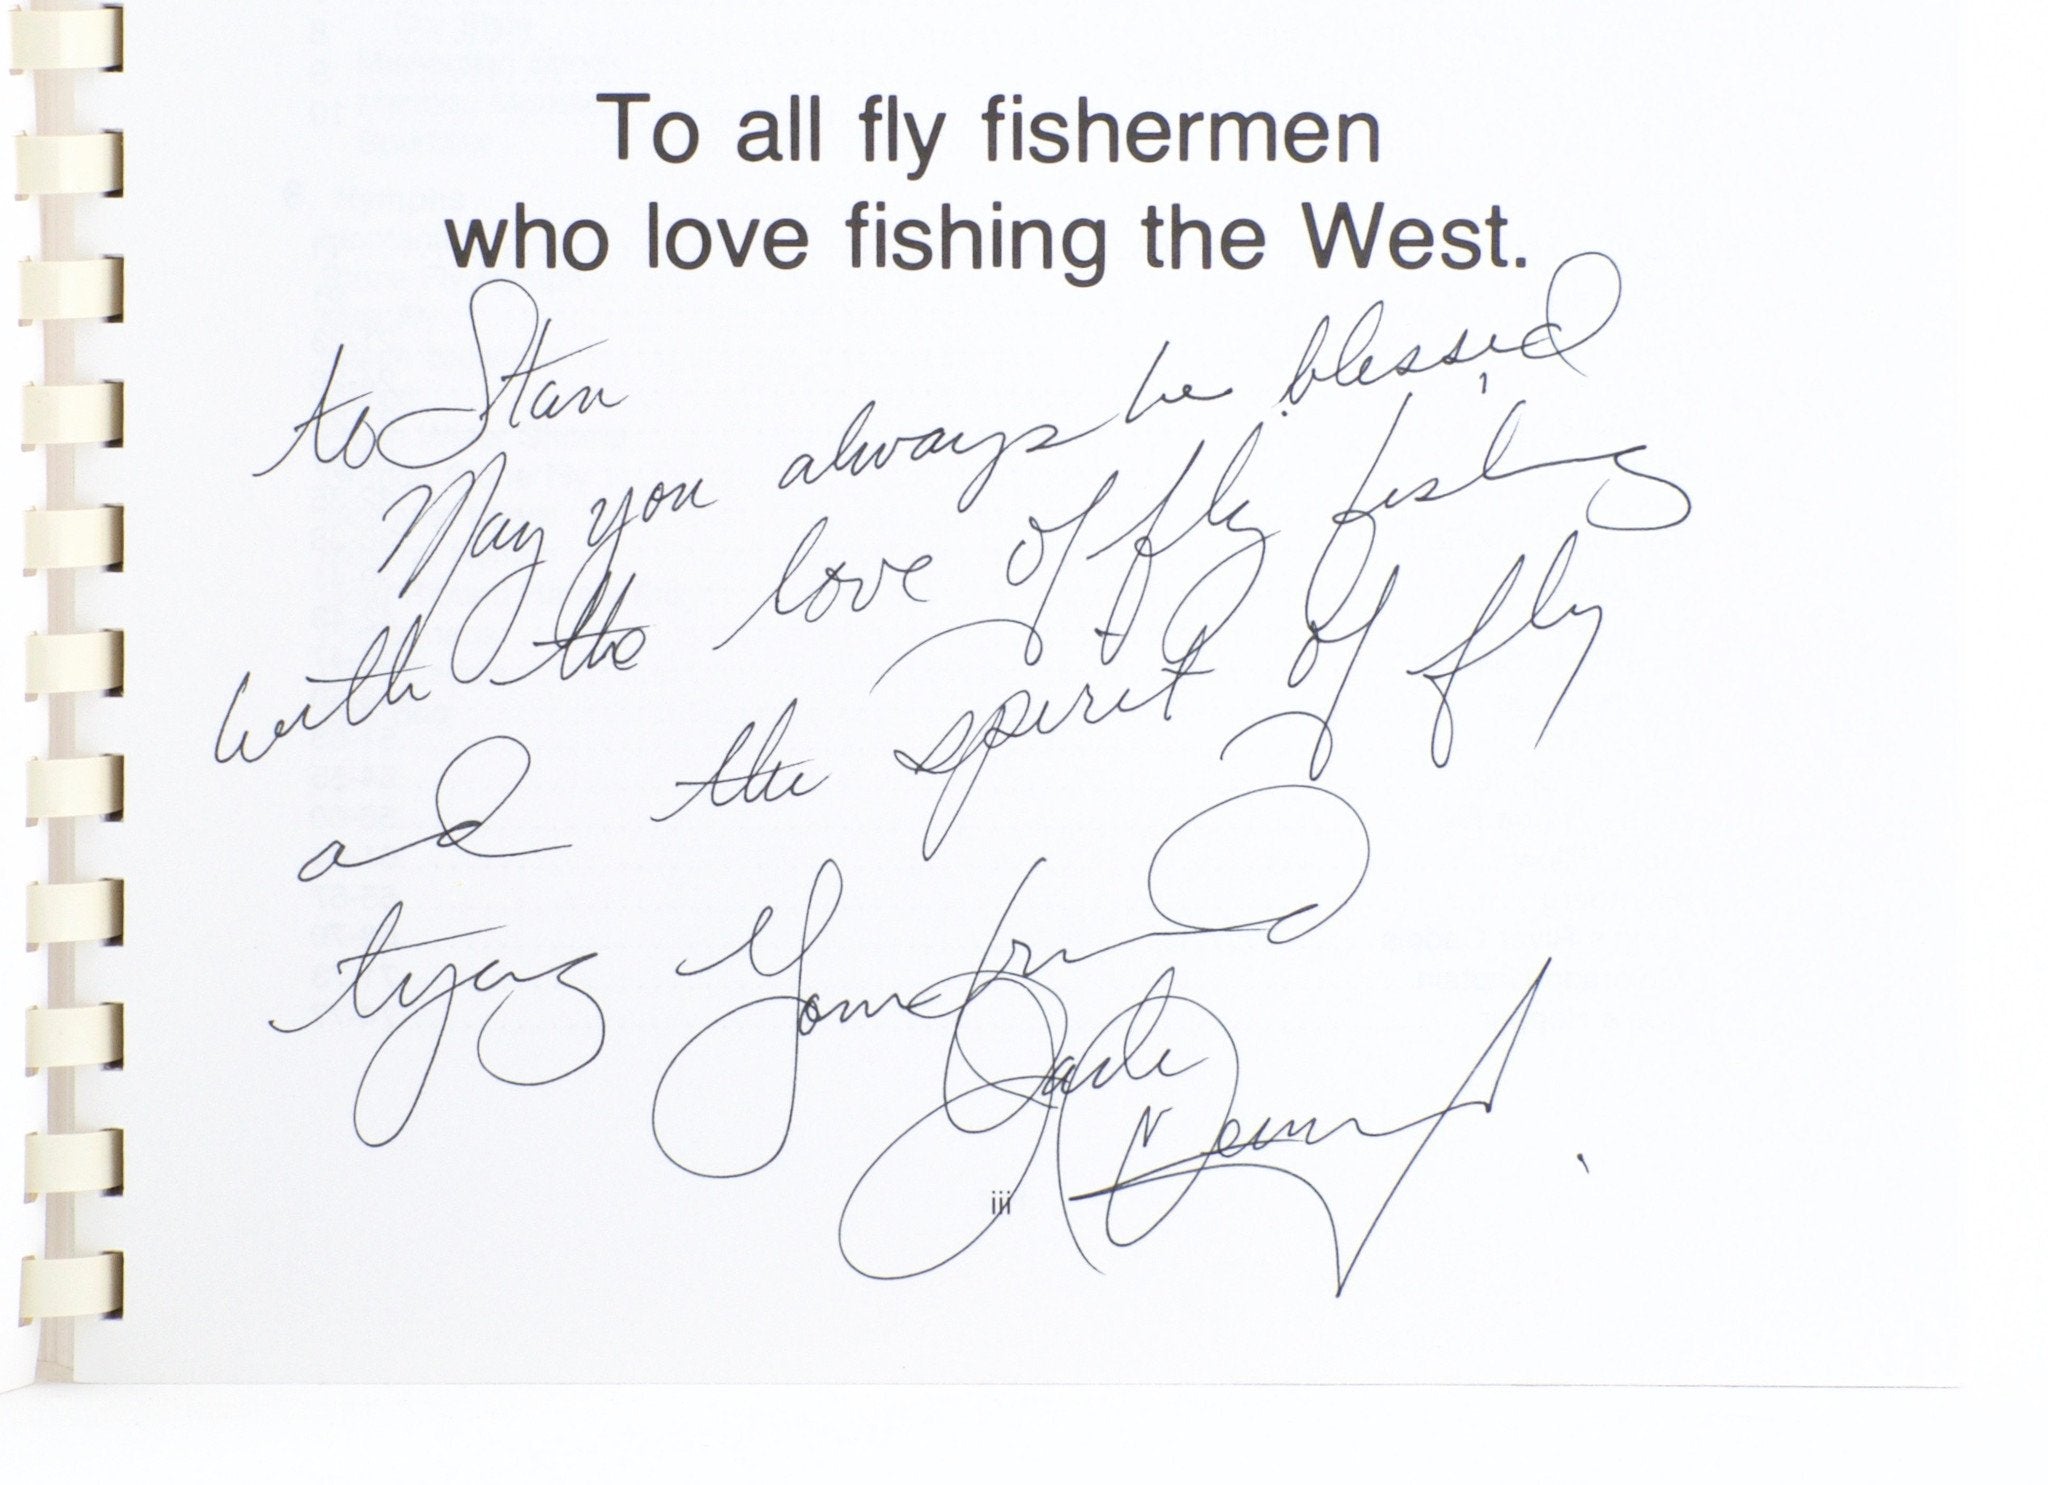 To all fly fishermen
who love fishing the West.
to Stan
May you always be blessed
with the love of fly fishing
and the spirit of fly
tying Your friend
Jack Dennis
iii